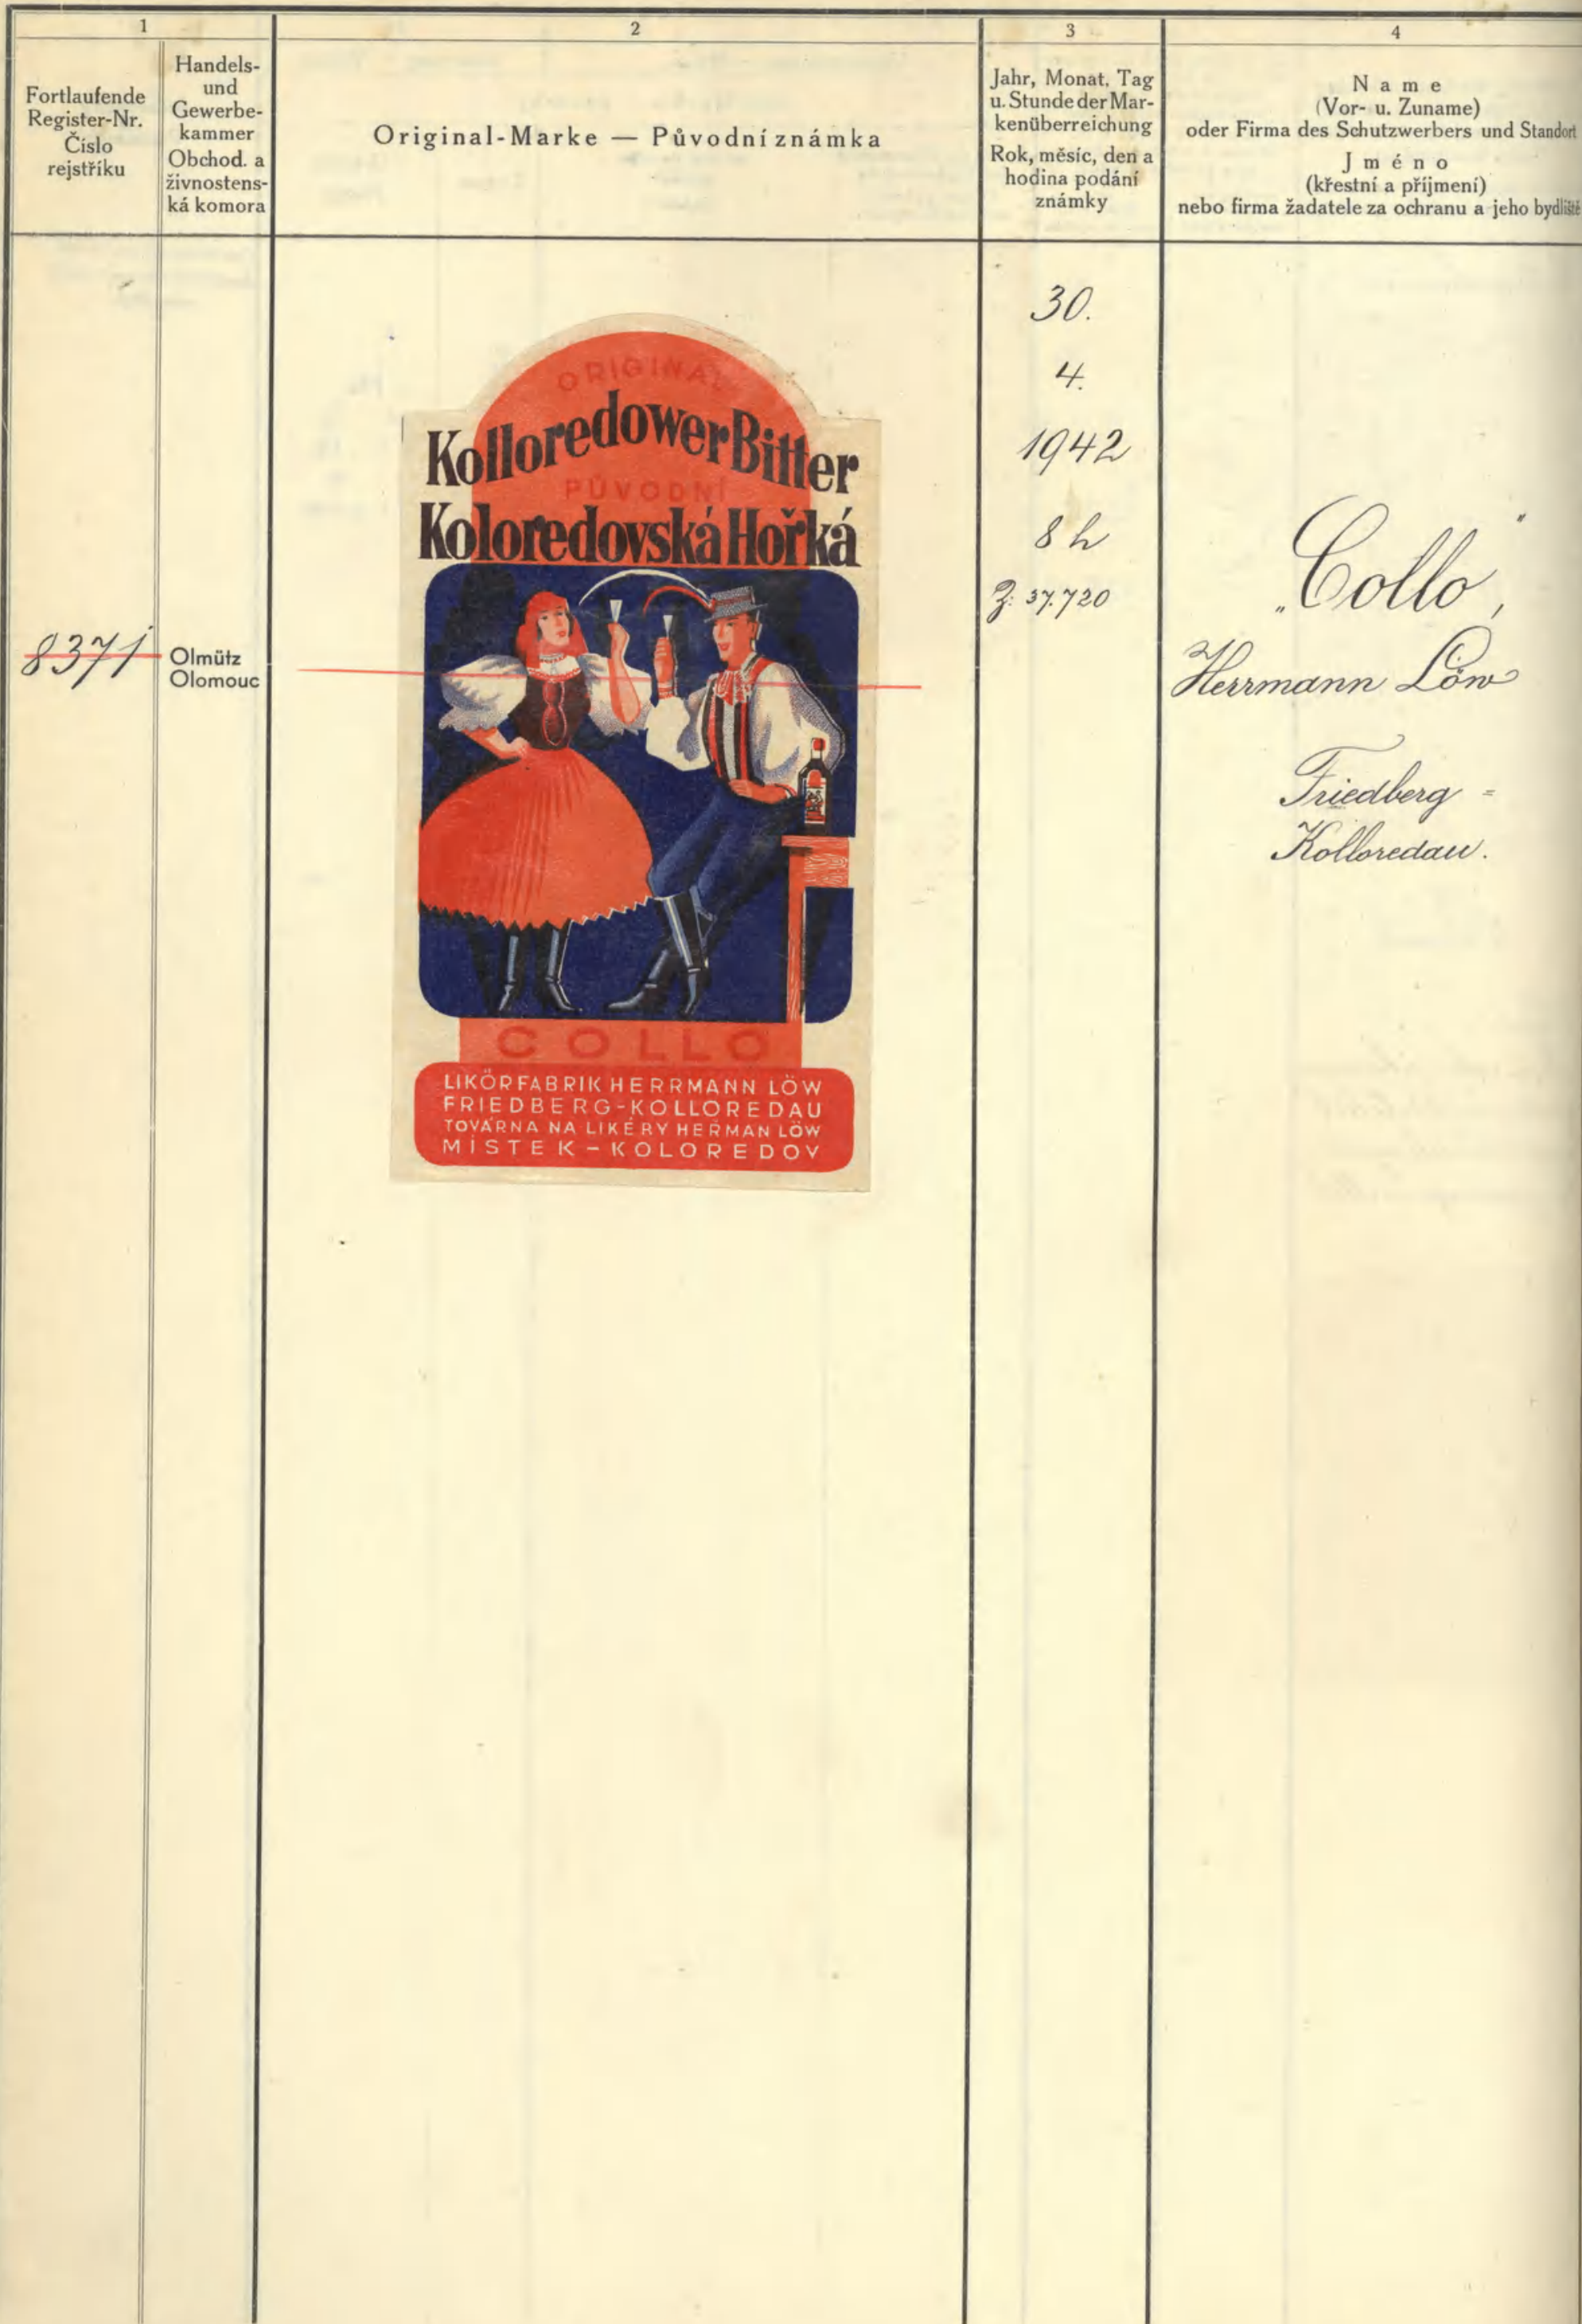 1
2
3
4
Fortlaufende
Register-Nr.
Číslo
rejstříku
Handels-
und
Gewerbe-
kammer
Obchod. a
živnostens-
ká komora
Original-Marke — Původní známka
Jahr, Monat, Tag
u. Stunde der Mar-
kenüberreichung
Rok, měsíc, den a
hodina podání
známky
Name
(Vor- u. Zuname)
oder Firma des Schutzwerbers und Standort
Jméno
(křestní a příjmení)
nebo firma žadatele za ochranu a jeho bydliště
8371
Olmütz
Olomouc
ORIGINAL
Kolloredower Bitter
PŮVODNÍ
Koloredovská Hořká
COLLO
LIKÖRFABRIK HERRMANN LÖW
FRIEDBERG-KOLLOREDAU
TOVÁRNA NA LIKÉRY HEŘMAN LÖW
MÍSTEK - KOLOREDOV
30.
4.
1942
8 h
Z: 37.720
„Collo“,
Herrmann Löw
Friedberg =
Kolloredau.